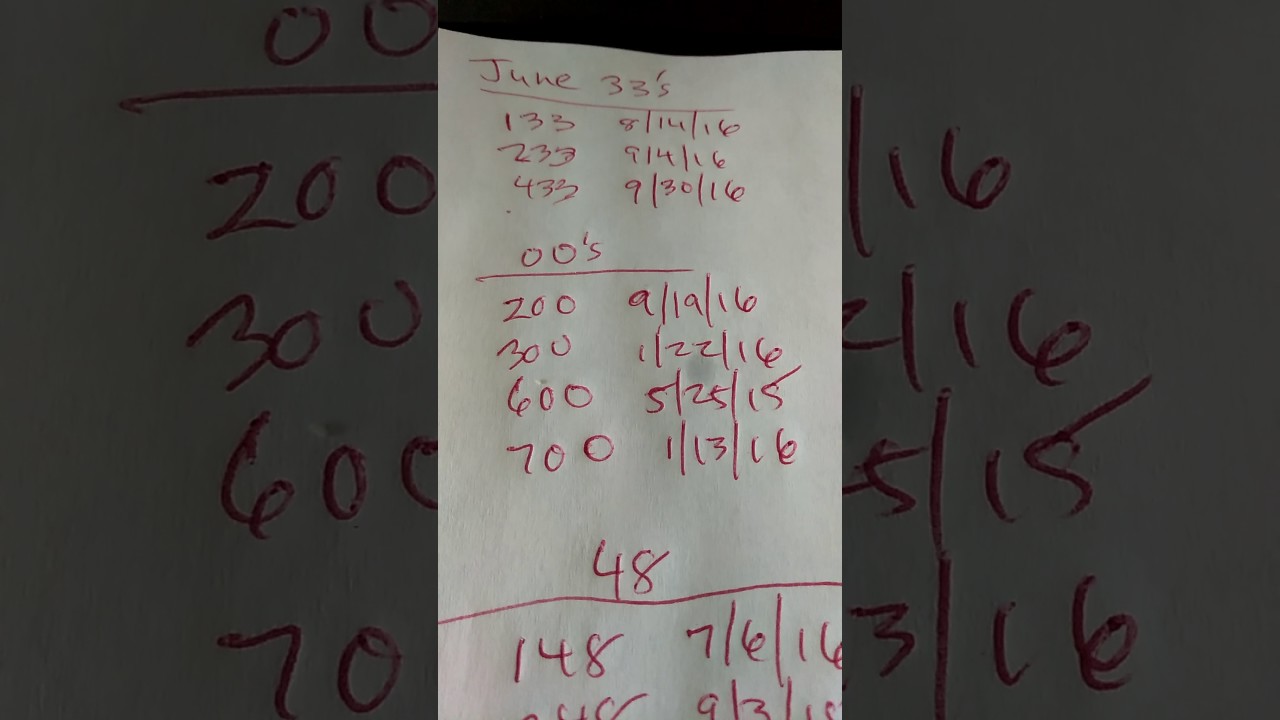 June 33's
133 8/14/16
233 9/4/16
433 9/30/16
00's
200 9/19/16
300 1/22/16
600 5/25/15
700 1/13/16
48
148 7/6/16